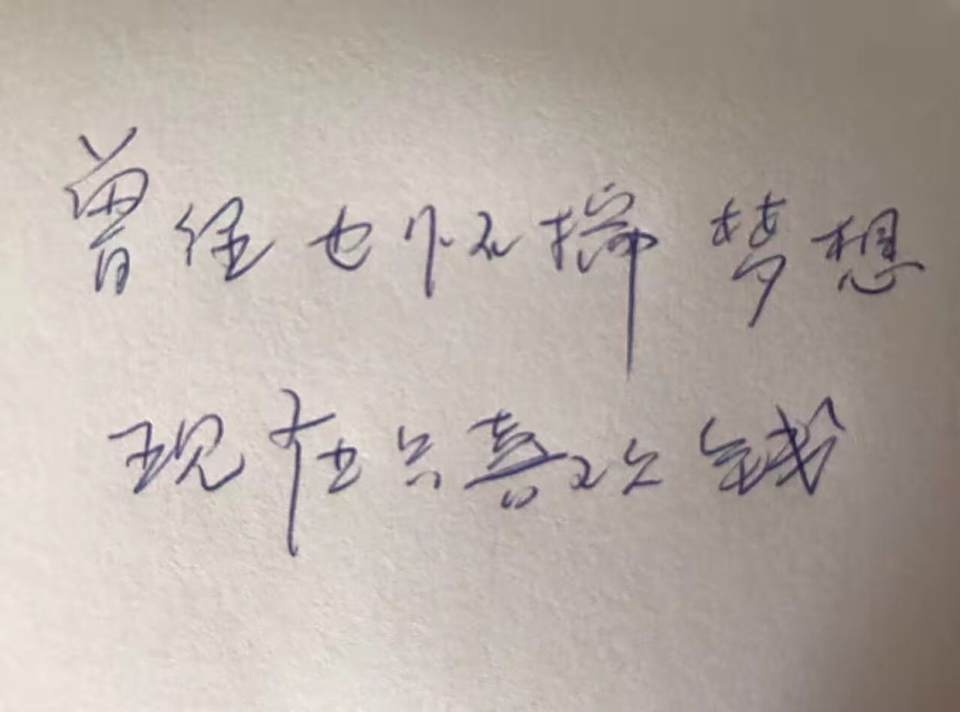 曾经也怀揣梦想
现在只喜欢钱